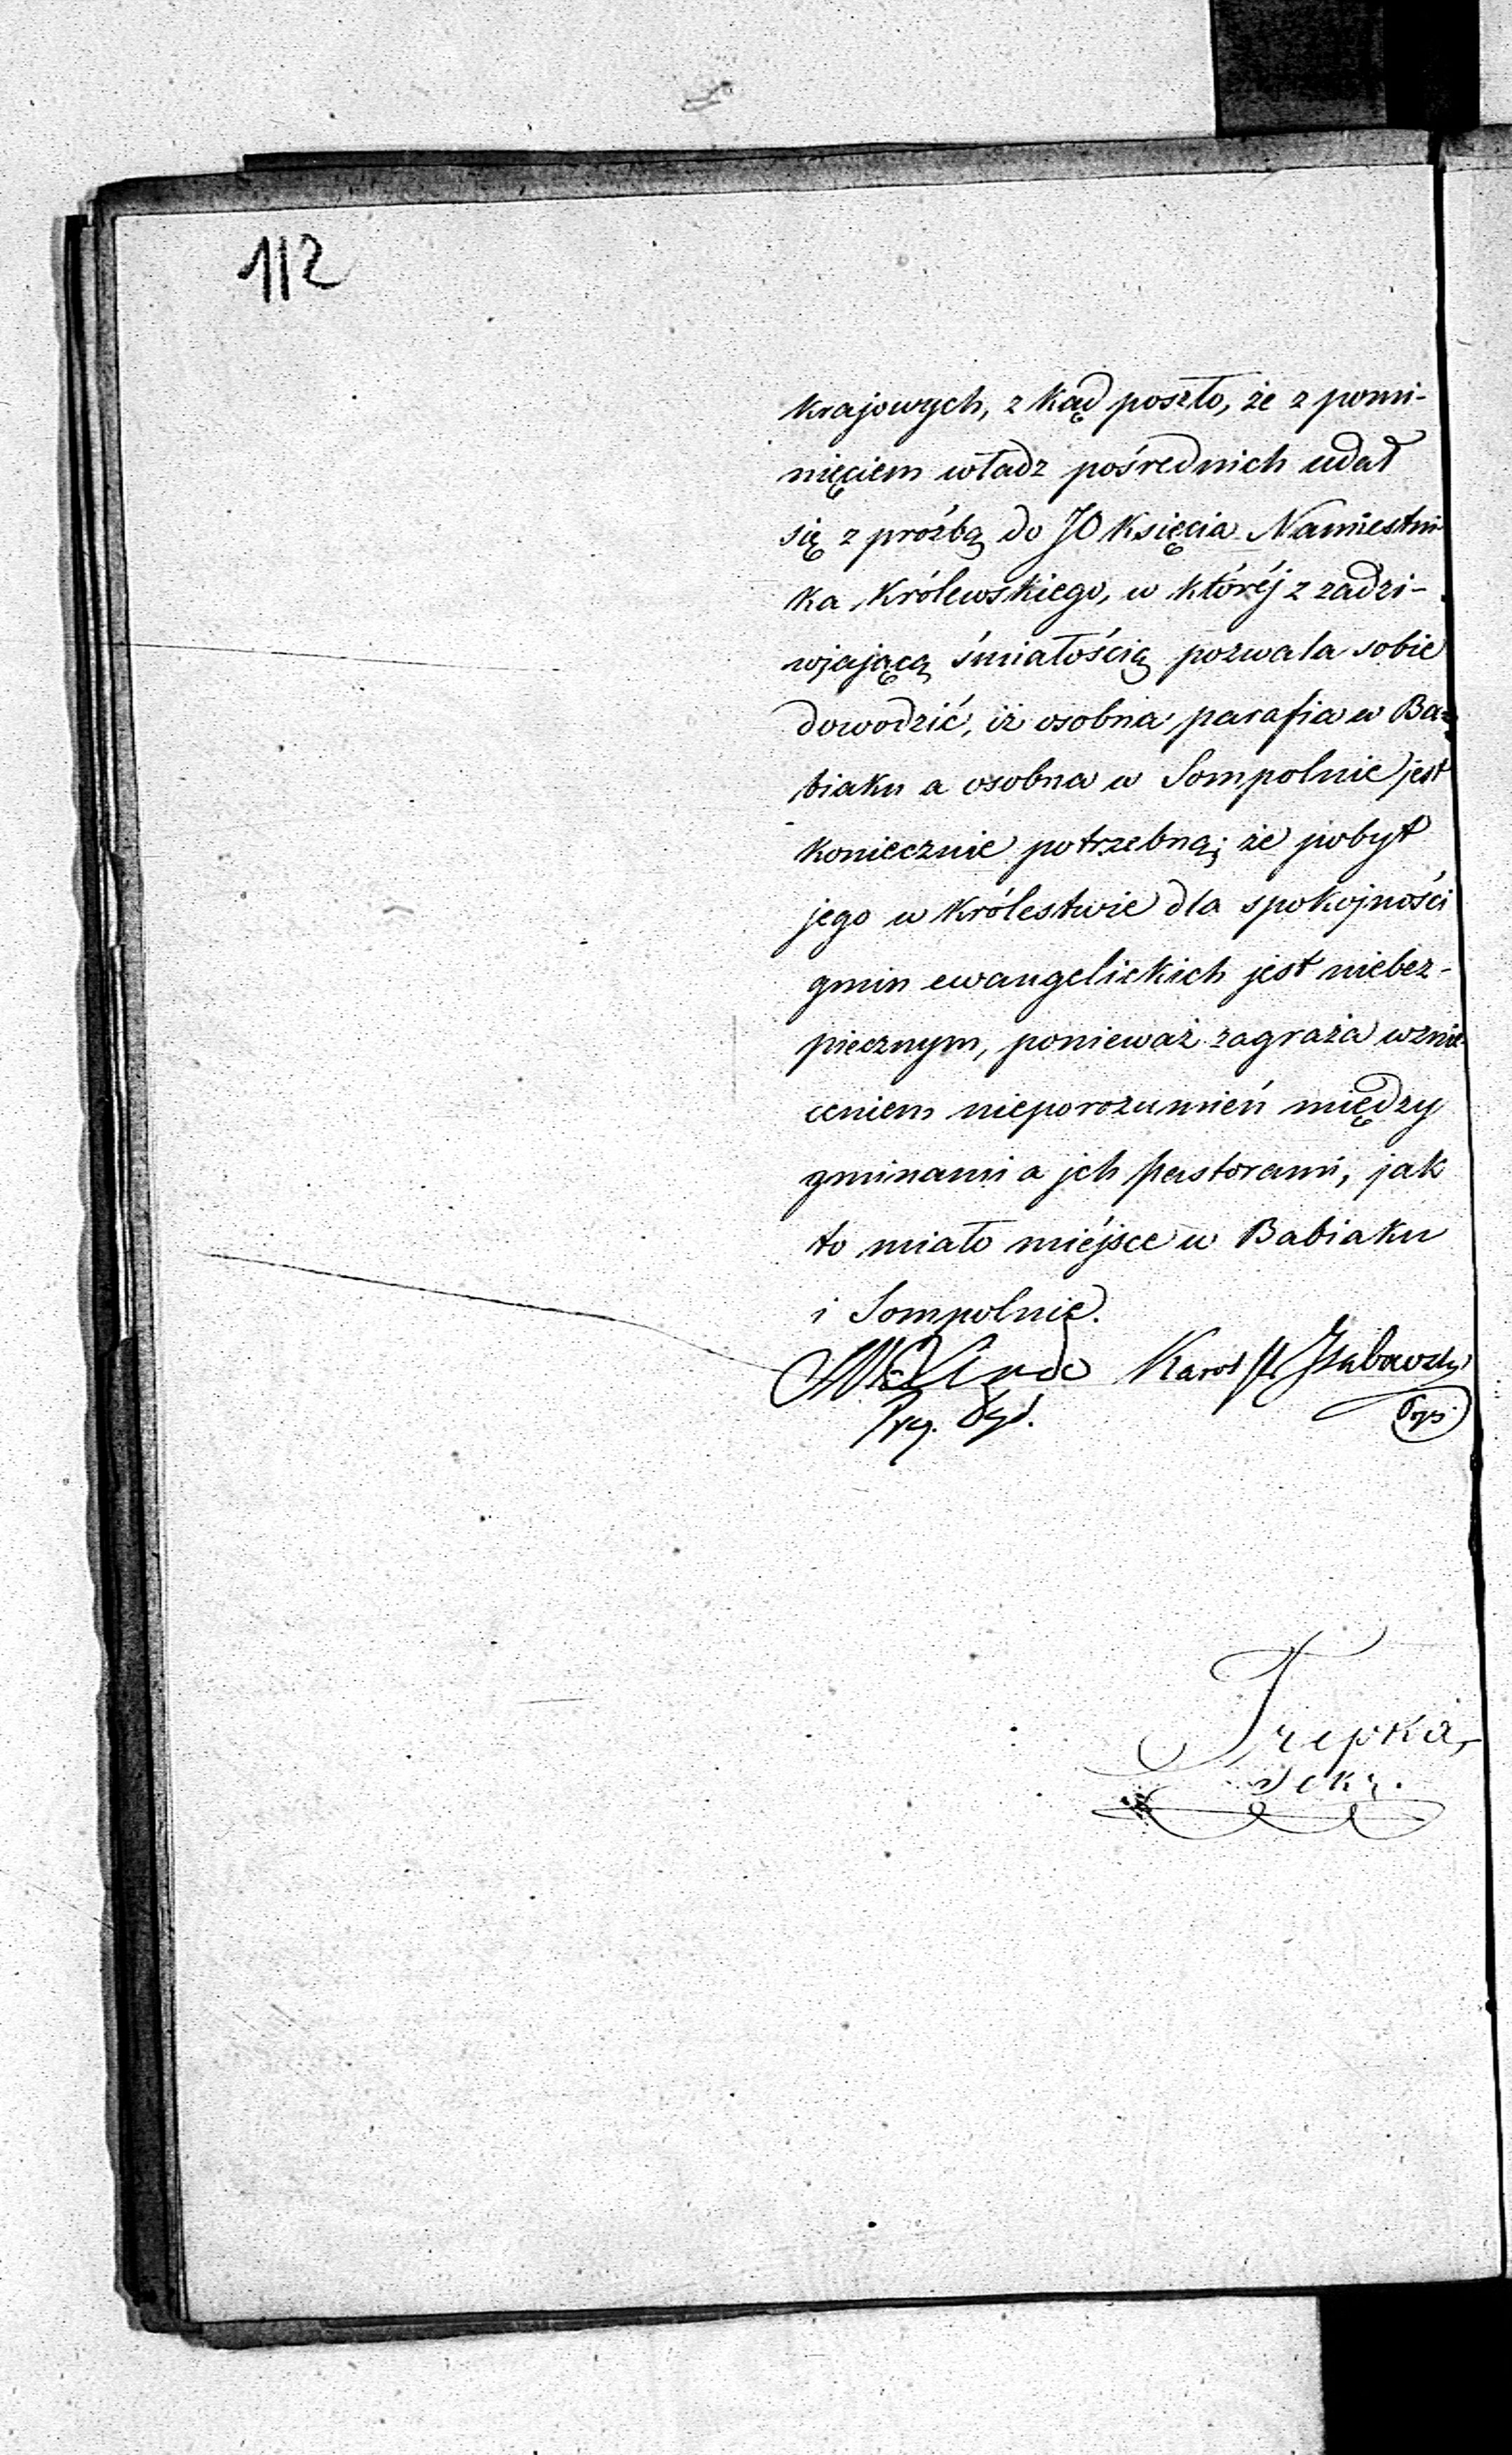 112
krajowych, z kąd poszło, że z pomi-
nięciem władz pośrednich udał
się z proźbą do JO Księcia Namiestni-
ka Królewskiego, w któréj z zadzi-
wjającą śmiałością pozwala sobie
dowodzić, iż osobna parafia w Ba-
biaku a osobna w Sompolnie jest
koniecznie potrzebną; że pobyt
jego w Królestwie dla spokojności
gmin ewangelickich jest niebez-
piecznym, ponieważ zagraża wznie-
ceniem nieporozumień między
gminami a jch pastorami, jak
to miało miéjsce w Babiaku
i Sompolnie.
Karol
Trepka,
Sekr.